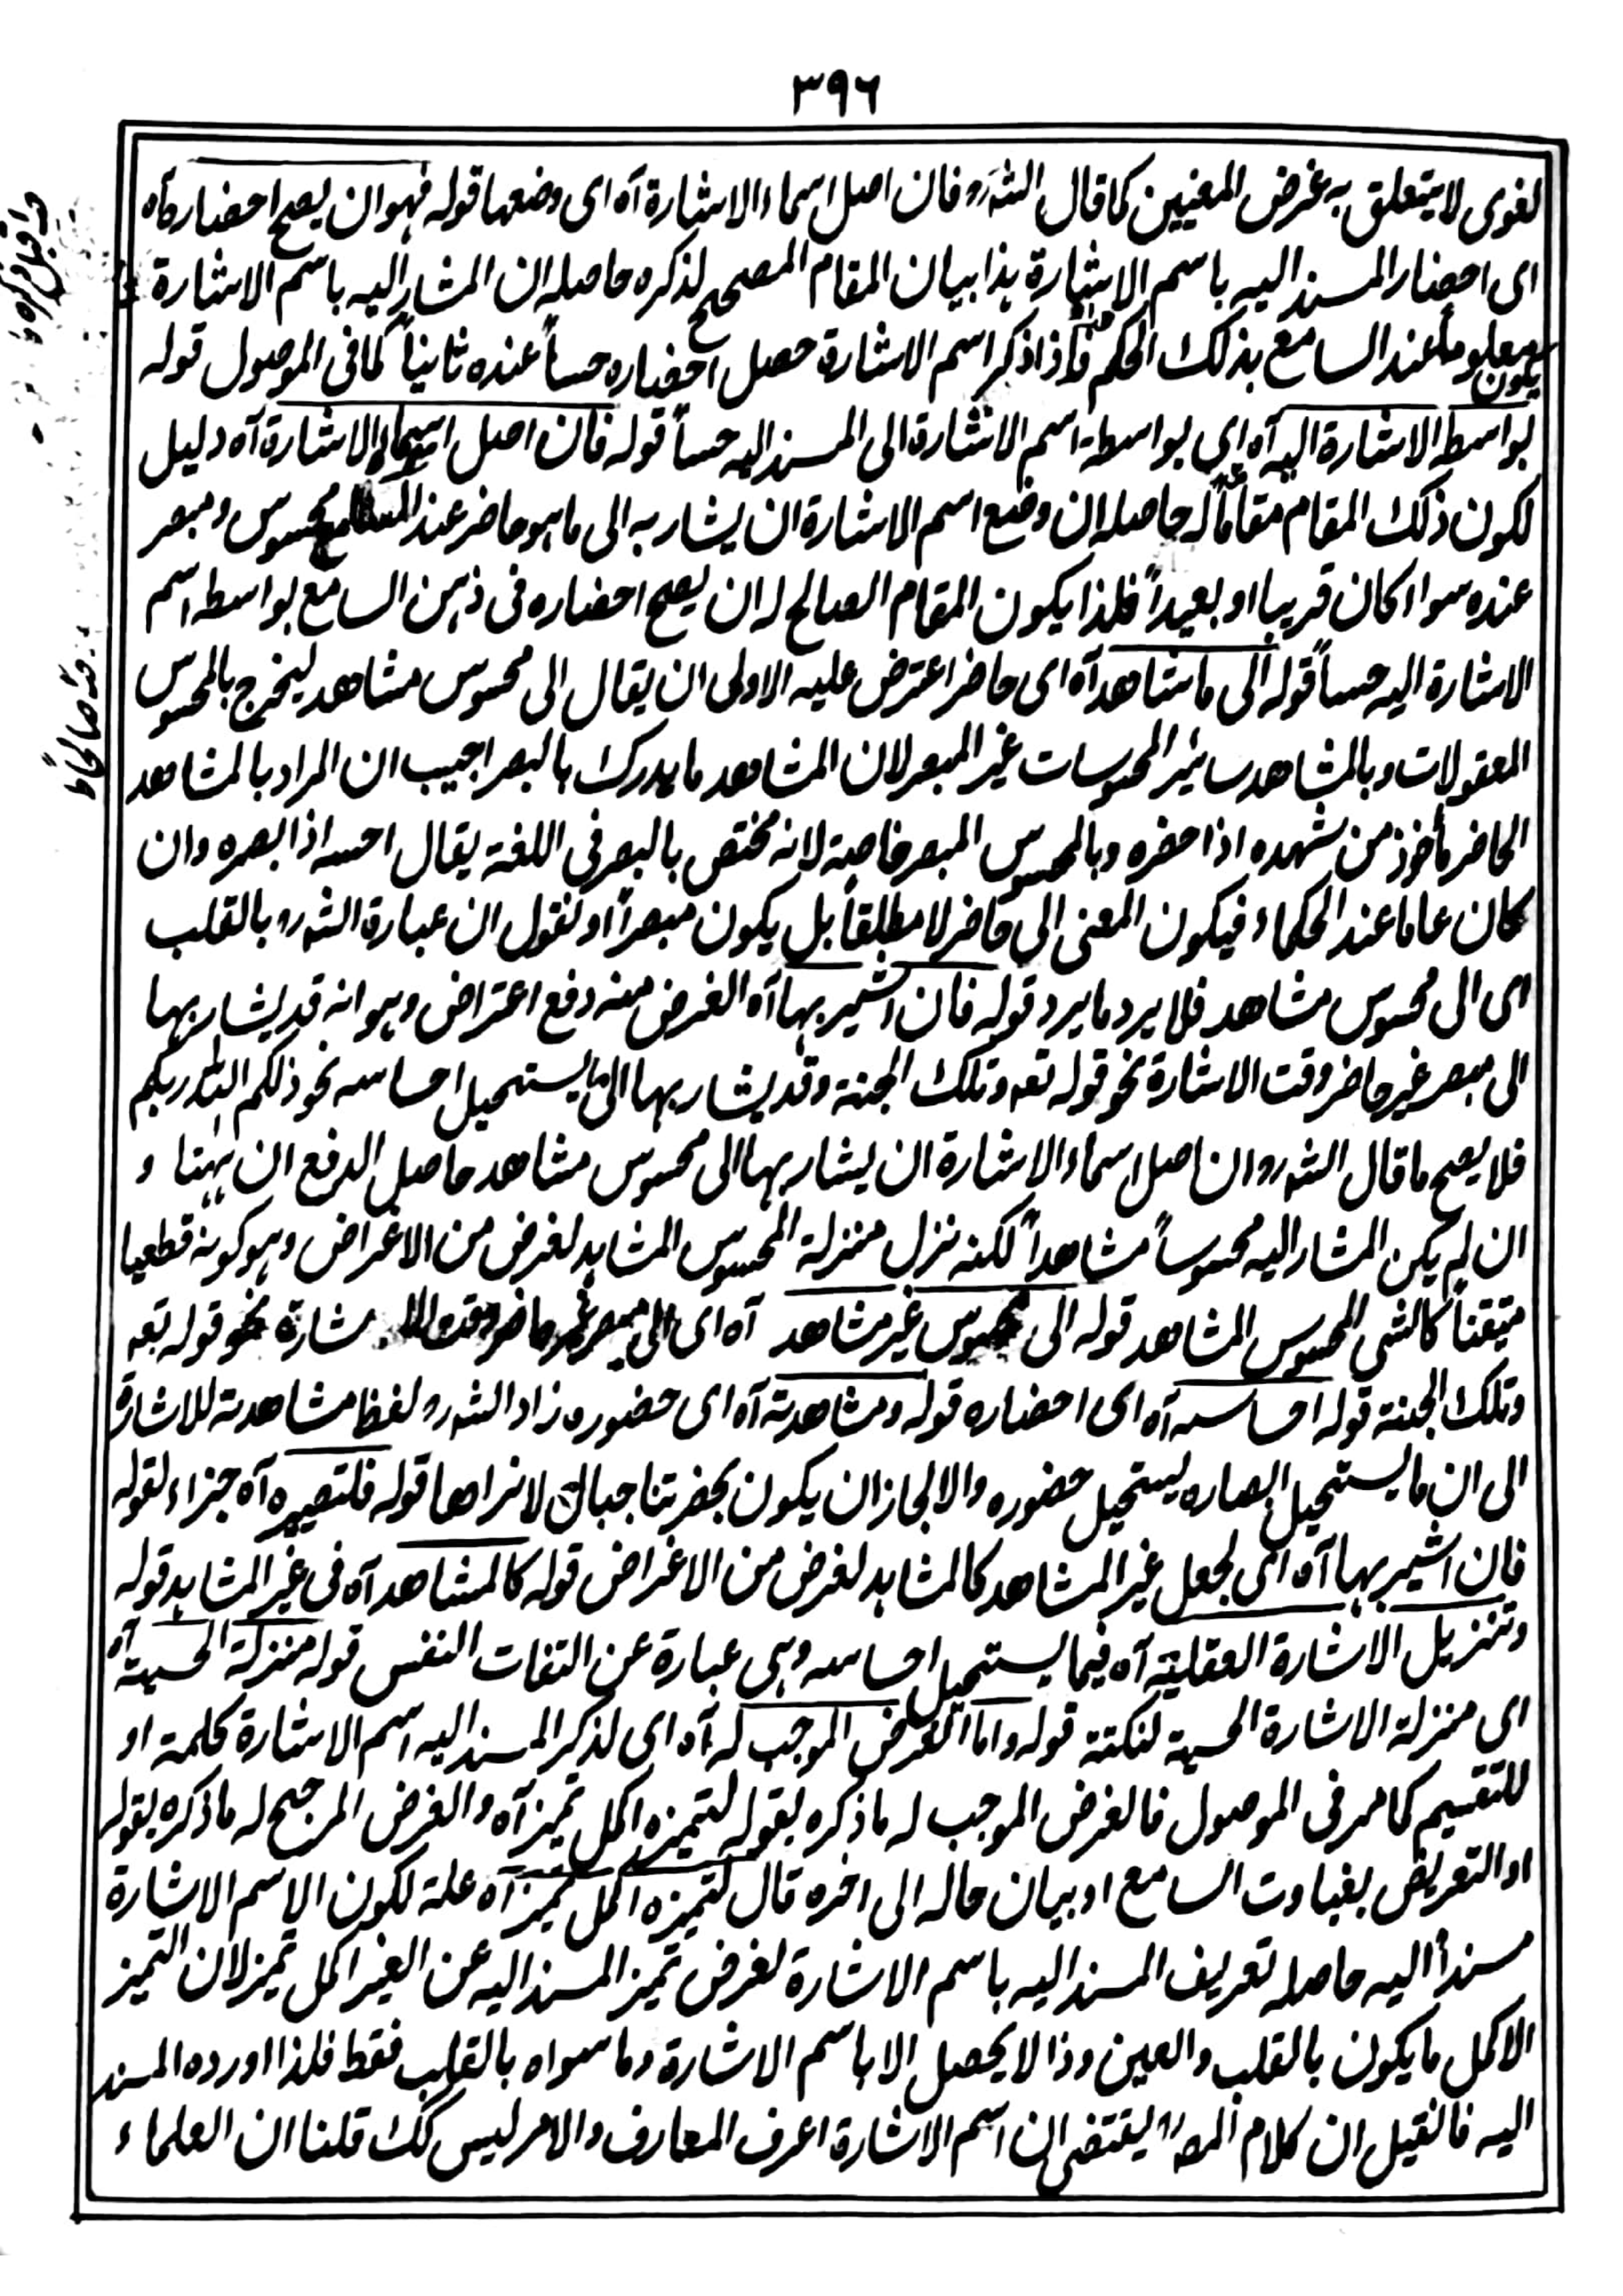 ٣٩٦
لغوى لا يتعلق به غرض المغيين كما قال الشه رو فان اصل اسماء الاشارة آه اى وضعها قوله فهو ان يصح احضاره آه
اى احضار المسند اليه باسم الاشارة هذا بيان المقام المصحح لذكره حاصله ان المشار اليه باسم الاشارة
يكون معلوماً عند السامع بذلك الحكم فاذا ذكر اسم الاشارة حصل احضاره حساً عنده ثانياً كما فى الموصول قوله
بواسطه الاشارة اليه آه اى بواسطة اسم الاشارة الى المسند اليه حساً قوله فان اصل اسماء الاشارة آه دليل
لكون ذلك المقام مقاماً له حاصله ان وضع اسم الاشارة ان يشار به الى ما هو حاضر عند السامع محسوس ومبصر
عنده سواء كان قريبا او بعيداً فلذا يكون المقام الصالح له ان يصح احضاره فى ذهن السامع بواسطه اسم
الاشارة اليه حساً قوله الى ما شاهد آه اى حاضر اعترض عليه الاولى ان يقال الى محسوس مشاهد ليخرج بالمحسوس
المعقولات وبالمشاهد سائر المحسوسات غير المبصر لان المشاهد ما يدرك بالبصر اجيب ان المراد بالمشاهد
الحاضر مأخوذ من شهده اذا حضره وبالمحسوس المبصر خاصة لانه مختص بالبصر فى اللغة يقال احسه اذا ابصره وان
كان عاما عند الحكماء فيكون المعنى الى حاضر لا مطلقاً بل يكون مبصراً او نقول ان عبارة الشه رو بالقلب
اى الى محسوس مشاهد فلا يرد ما يرد قوله فان اشير بها آه الغرض منه دفع اعتراض وهو انه قد يشار بها
الى مبصر غير حاضر وقت الاشارة نحو قوله تعه وتلك الجنة وقد يشار بها الى ما يستحيل احساسه نحو ذلكم الله ربكم
فلا يصح ما قال الشه رو ان اصل اسماء الاشارة ان يشار بها الى محسوس مشاهد حاصل الدفع ان ههنا و
ان لم يكن المشار اليه محسوساً مشاهداً لكنه نزل منزلة المحسوس المشاهد لغرض من الاغراض وهو كونه قطعيا
متيقناً كالشى المحسوس المشاهد قوله الى محسوس غير مشاهد آه اى الى مبصر غير حاضر وقت الاشارة نحو قوله تعه
وتلك الجنة قوله احساسه آه اى احضاره قوله ومشاهدته آه اى حضوره زاد الشه رو لفظ مشاهدته للاشارة
الى ان ما يستحيل ابصاره يستحيل حضوره والا لجاز ان يكون بحضرتنا جبال لا نراها قوله فلتصييره آه جزاء لقوله
فان اشير بها آه اى لجعل غير المشاهد كالمشاهد لغرض من الاغراض قوله كالمشاهد آه فى غير المشاهد قوله
وتنزيل الاشارة العقلية آه فيما يستحيل احساسه وهى عبارة عن التفات النفس قوله منزلة الحسية آه
اى منزلة الاشارة الحسية لنكتة قوله واما الغرض الموجب له آه اى لذكر المسند اليه اسم الاشارة كلمة او
للتقسيم كما مر فى الموصول فالغرض الموجب له ما ذكره بقوله لتميزه اكمل تميز آه والغرض المرجح له ما ذكره بقوله
او التعريض بغباوت السامع او بيان حاله الى اخره قال لتميزه اكمل تميز آه علة لكون الاسم الاشارة
مسنداً اليه حاصله تعريف المسند اليه باسم الاشارة لغرض تميز المسند اليه عن الغير اكمل تميز لان التميز
الاكمل ما يكون بالقلب والعين وذا لا يحصل الا باسم الاشارة وما سواه بالقلب فقط فلذا اورده المسند
اليه فانقيل ان كلام المصه يقتضى ان اسم الاشارة اعرف المعارف والامر ليس كك قلنا ان العلماء